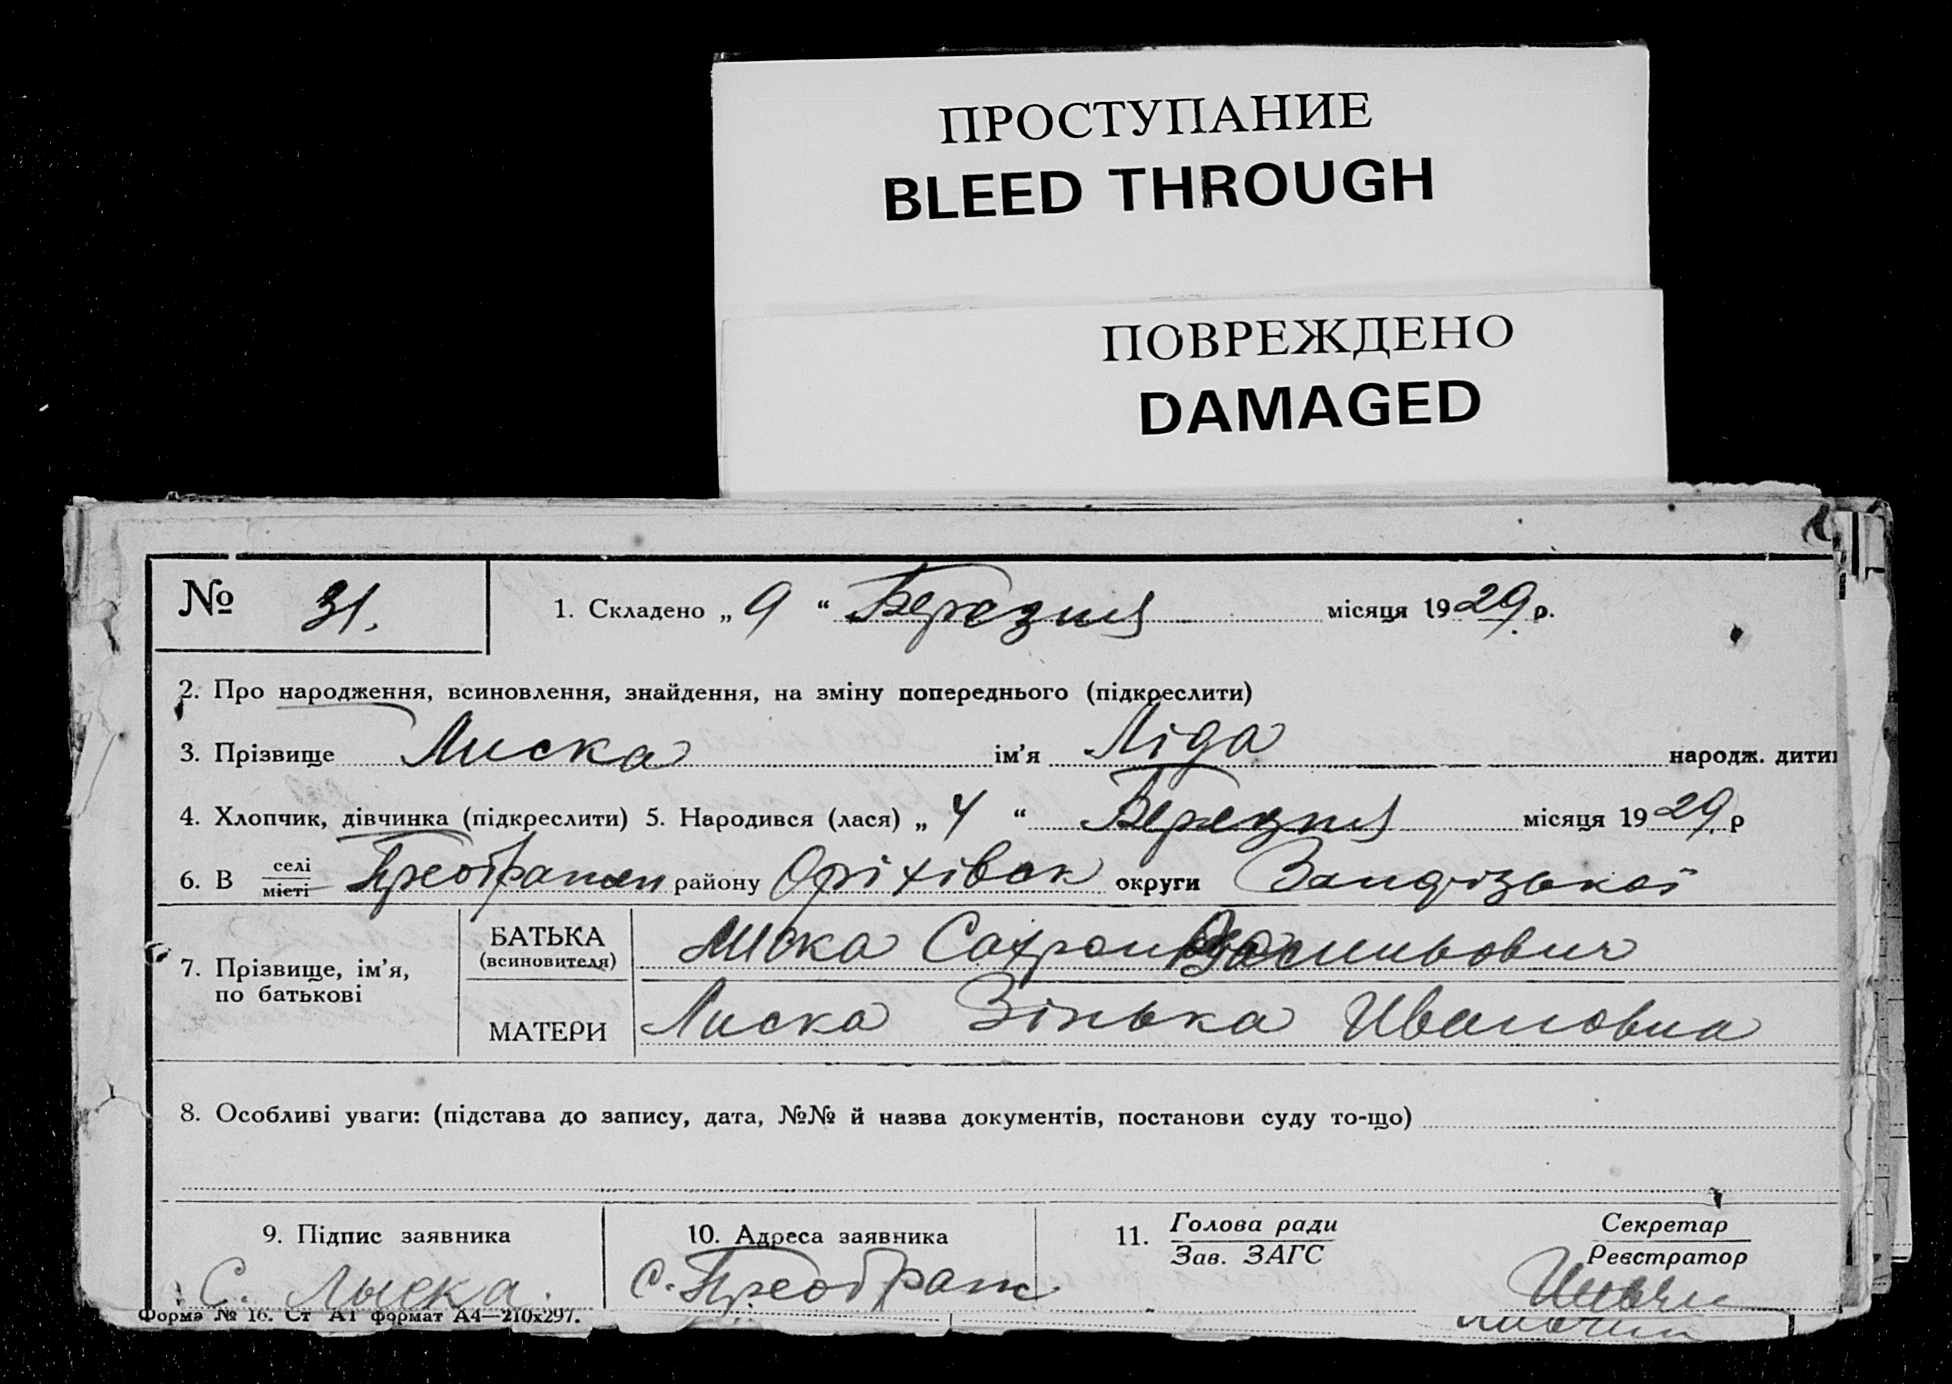 ПРОСТУПАНИЕ
BLEED THROUGH
ПОВРЕЖДЕНО
DAMAGED
№ 31.
1. Складено „ 9 “ Березня місяця 1929 р.
2. Про народження, всиновлення, знайдення, на зміну попереднього (підкреслити)
3. Прізвище Лиска ім’я Ліда народж. дити
4. Хлопчик, дівчинка (підкреслити) 5. Народився (лася) „ 4 “ Березня місяця 1929 р
6. В селі/місті району Оріхівск округи
7. Прізвище, ім’я, по батькові
БАТЬКА (всиновителя) Лиска Василькович
МАТЕРИ Лиска Зінька Ивановна
8. Особливі уваги: (підстава до запису, дата, №№ й назва документів, постанови суду то-що)
9. Підпис заявника
С. Лыска.
10. Адреса заявника
с. Преображ
11. Голова ради
Зав. ЗАГС
Секретар
Реєстратор
Форма № 16. Ст А1 формат А4—210х297.